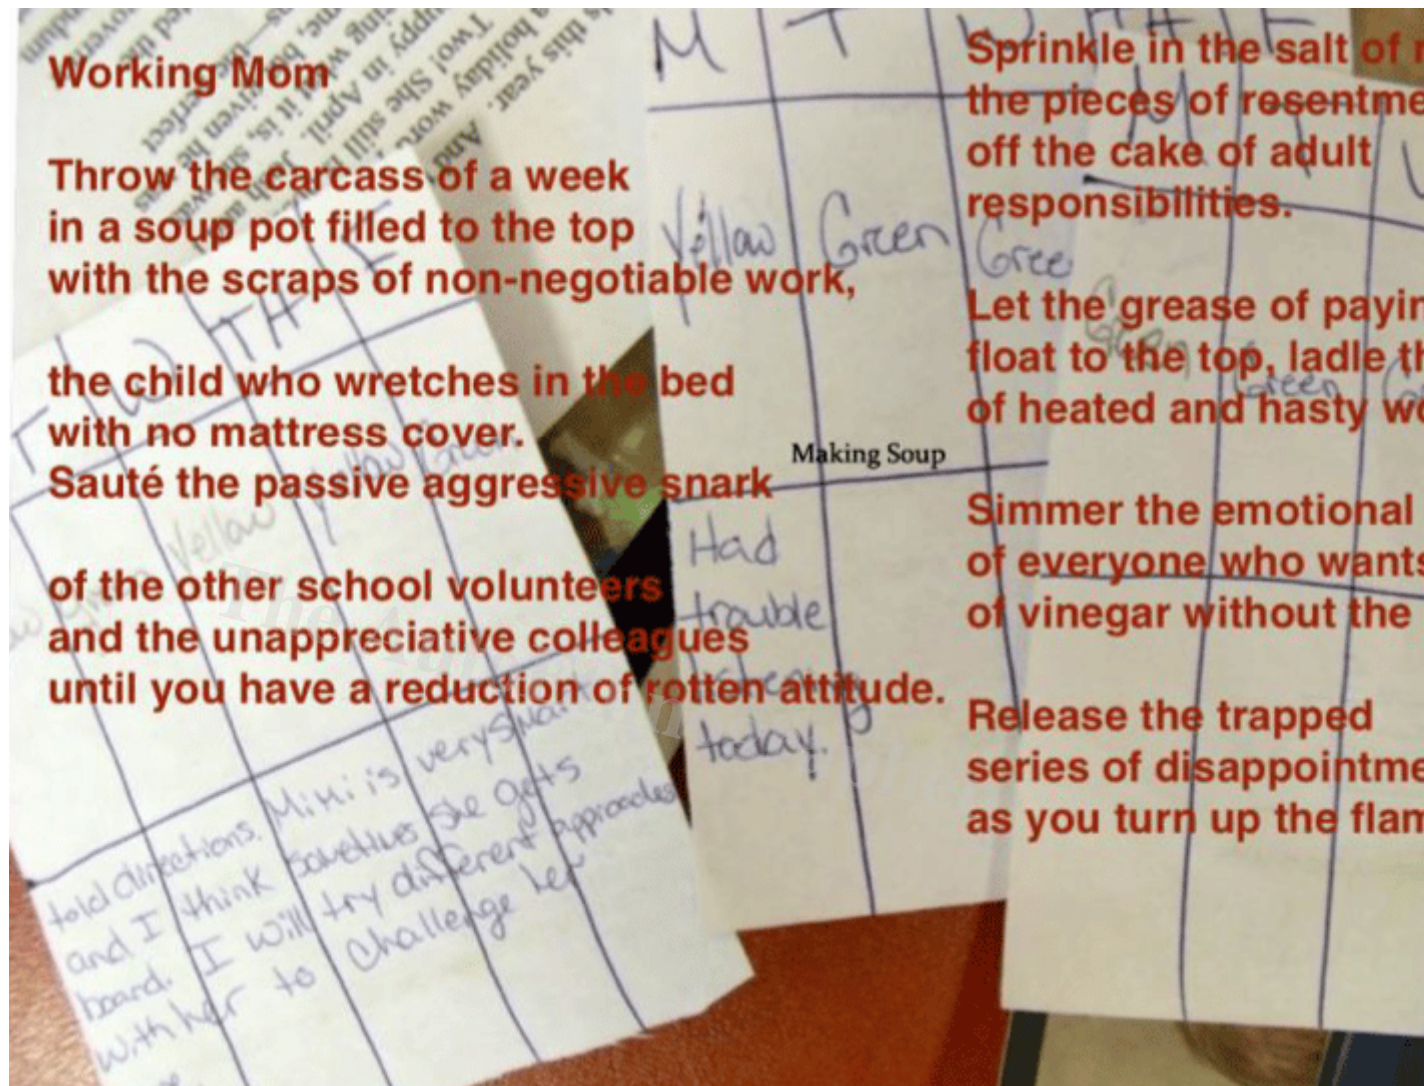 Working Mom
Throw the carcass of a week
in a soup pot filled to the top
with the scraps of non-negotiable work,
the child who wretches in the bed
with no mattress cover.
Sauté the passive aggressive snark
of the other school volunteers
and the unappreciative colleagues
until you have a reduction of rotten attitude.
Sprinkle in the salt of
the pieces of resentme
off the cake of adult
responsibilities.
Let the grease of payin
float to the top, ladle th
of heated and hasty wo
Simmer the emotional
of everyone who wants
of vinegar without the
Release the trapped
series of disappointme
as you turn up the flam
Making Soup
this year.
holiday
Two! She still
in April.
perfect
T W TH F
Yellow Yellow Green
told directions. Mimi is very smart
and I think sometimes she gets
board. I will try different approaches
with her to challenge her
M T W TH F
Yellow Green Gree
Had
trouble
today.
M T
Green Green